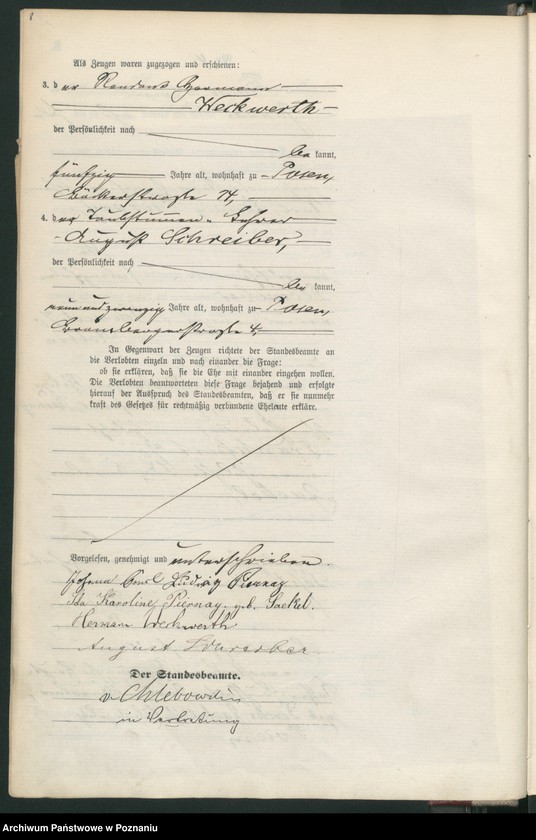 8
Als Zeugen waren zugezogen und erschienen:
3. der Rendant Hermann
Weckwerth
der Persönlichkeit nach
bekannt,
fünfzig Jahre alt, wohnhaft zu Posen,
Bäckerstraße 14,
4. der Taubstummen-Lehrer
August Schreiber,
der Persönlichkeit nach
bekannt,
neunundzwanzig Jahre alt, wohnhaft zu Posen,
4.
In Gegenwart der Zeugen richtete der Standesbeamte an
die Verlobten einzeln und nach einander die Frage:
ob sie erklären, daß sie die Ehe mit einander eingehen wollen.
Die Verlobten beantworteten diese Frage bejahend und erfolgte
hierauf der Ausspruch des Standesbeamten, daß er sie nunmehr
kraft des Gesetzes für rechtmäßig verbundene Eheleute erkläre.
Vorgelesen, genehmigt und unterschrieben.
Johann Emil Ludwig Piernay
Ida Karoline Piernay geb. Jaekel.
Hermann Weckwerth
August Schreiber
Der Standesbeamte.
v. Chlebowski
in Vertretung
Archiwum Państwowe w Poznaniu